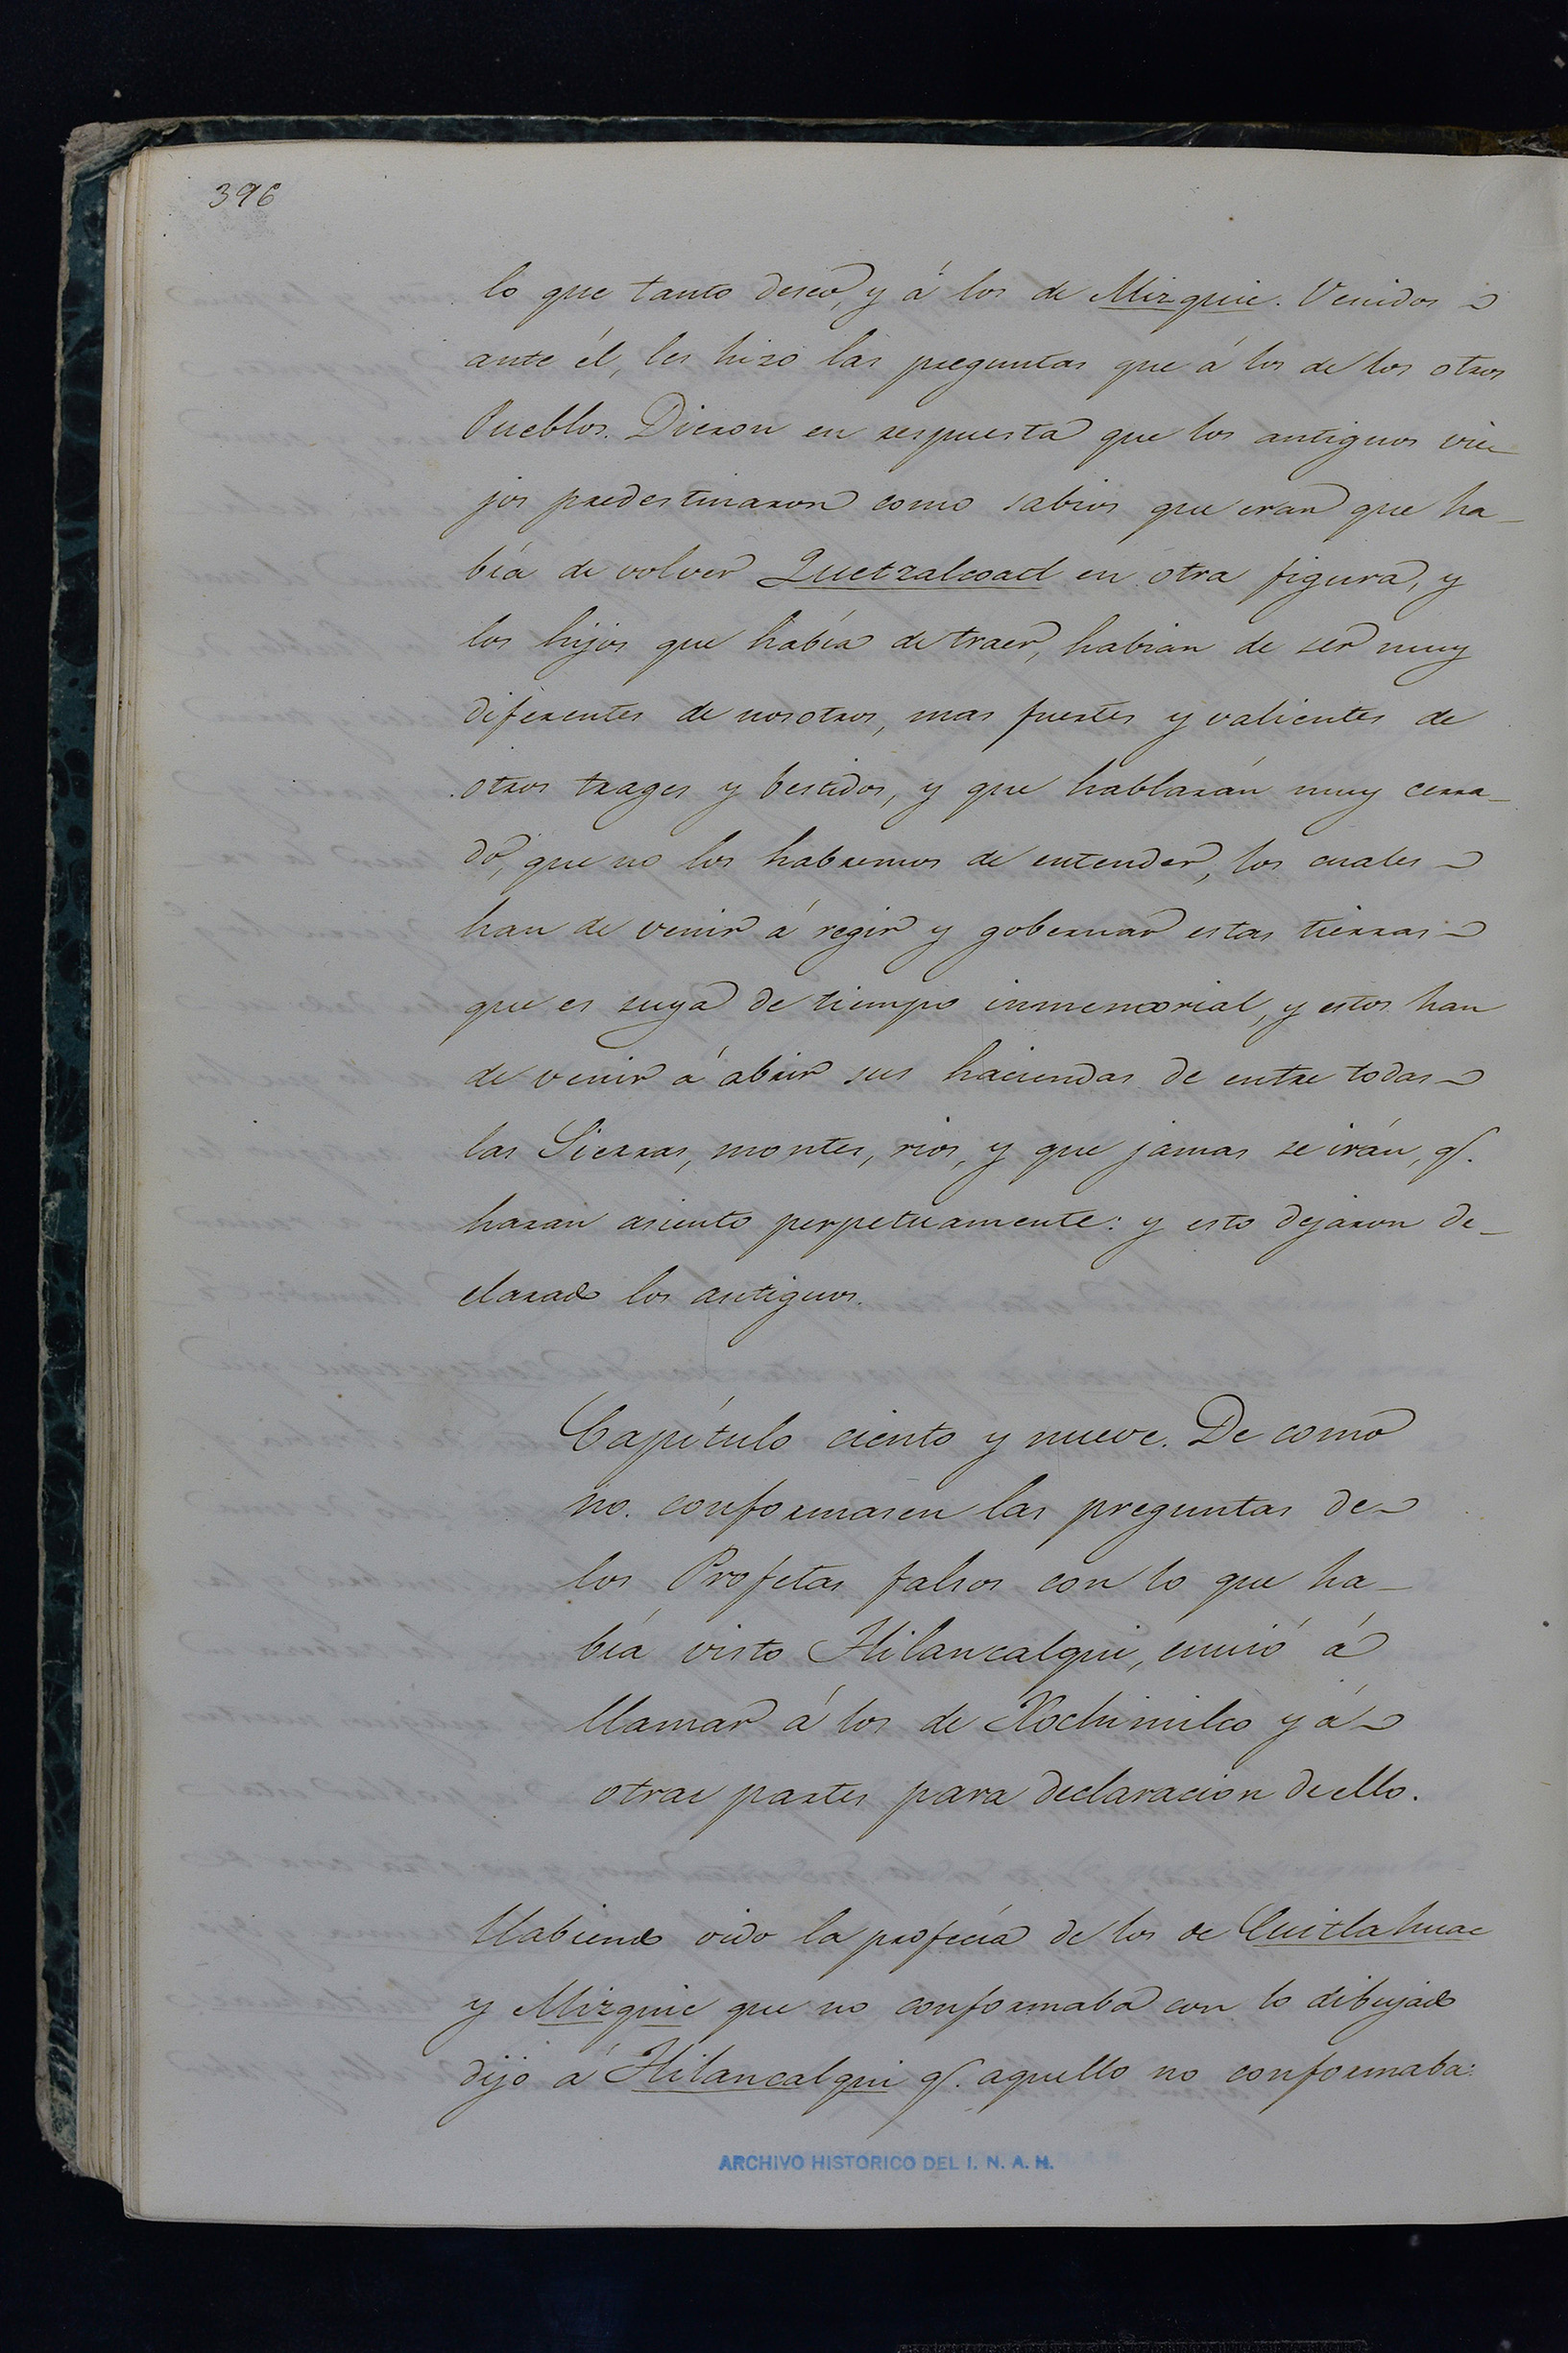 396
lo que tanto deseo, y á los de Mizquic. Venidos
ante él, les hizo las preguntas que á los de los otros
Pueblos. Dieron en respuesta que los antiguos vie-
jos predestinaron como sabios que eran que ha-
bía de volver Quetzalcoatl en otra figura, y
los hijos que había de traer, habian de ser muy
diferentes de nosotros, mas fuertes y valientes de
otros trages y bestidos, y que hablarán muy cerra-
do, que no los habremos de entender, los cuales
han de venir á regir y gobernar estas tierras
que es suya de tiempo inmemorial, y estos han
de venir á abrir sus haciendas de entre todas
las Sierras, montes, rios, y que jamas se irán, q.
haran asiento perpetuamente: y esto dejaron de-
clarado los antiguos.
Capítulo ciento y nueve. De como
no conformasen las preguntas de
los Profetas falsos con lo que ha-
bía visto Hilancalqui, envió á
llamar á los de Xochimilco y á
otras partes para declaracion de ello.
Habiendo oido la profecía de los de Cuitlahuac
y Mizquic que no conformaba con lo dibujado
dijo á Hilancalqui q. aquello no conformaba:
ARCHIVO HISTORICO DEL I. N. A. H.